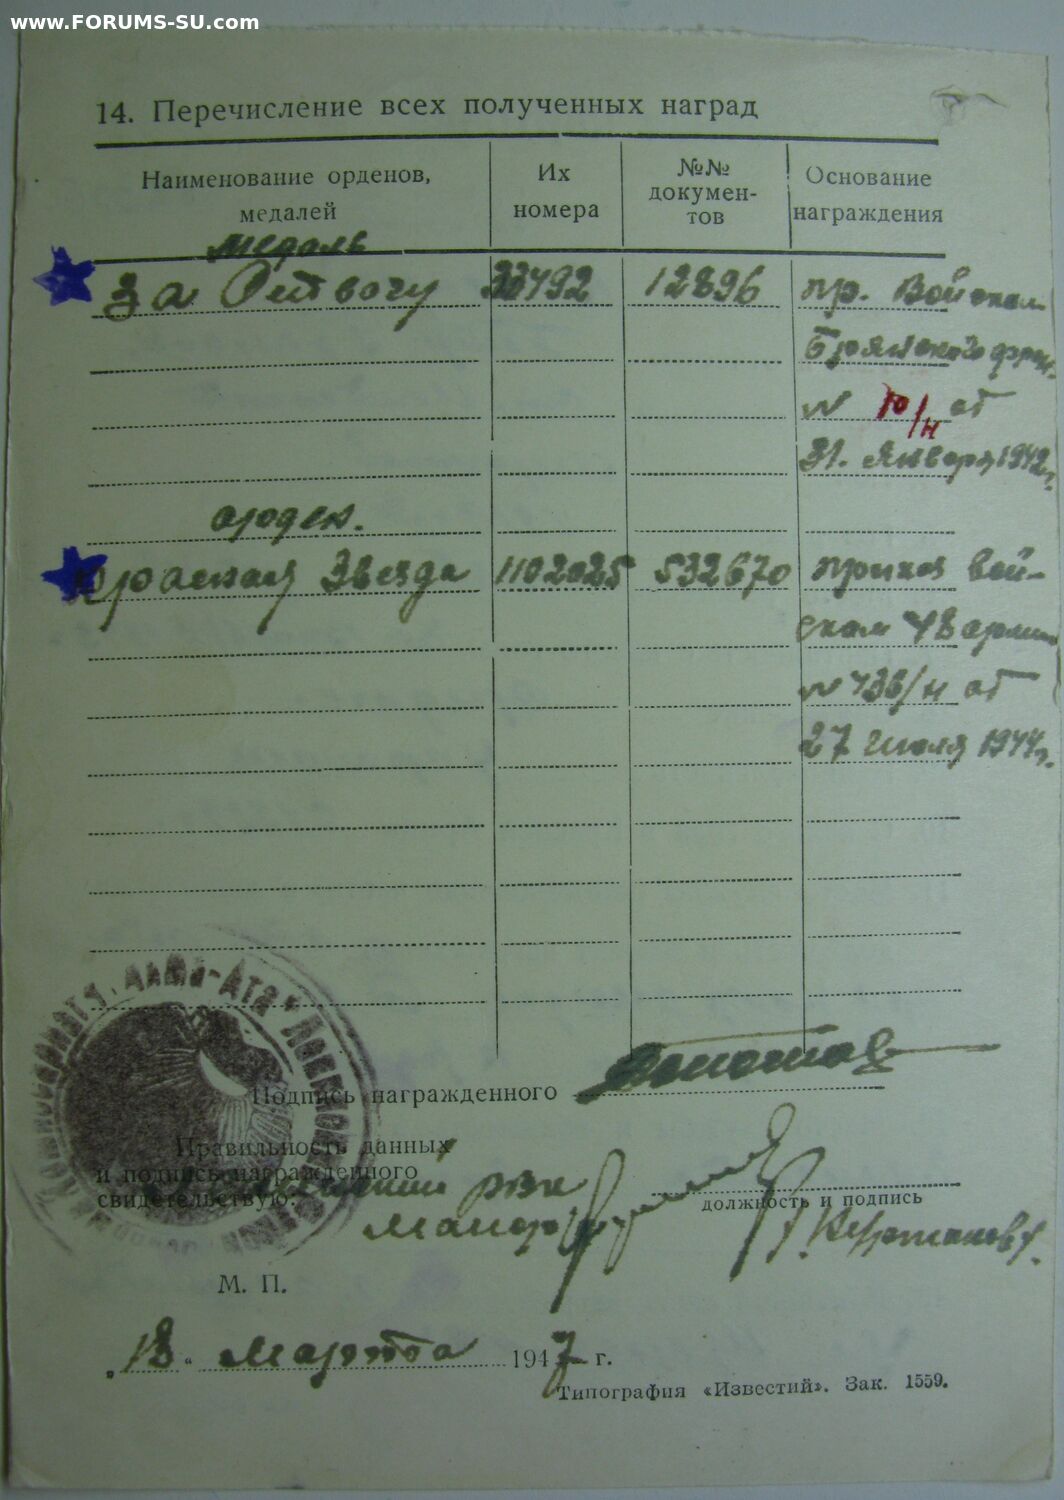 www.FORUMS-SU.com
14. Перечисление всех полученных наград
Наименование орденов, медалей
Их номера
№№ докумен-тов
Основание награждения
медаль
За Отвагу 33492 12896 пр. Войскам
Брянского фрон.
№ 10/н от
31. Января 1942г.
орден.
Красная Звезда 1102025 532670 приказ вой-
скам 48 армии
№ 436/н от
27 июля 1944г.
"АЛМА-АТА"
Подпись награжденного
Правильность данных
и подпись награжденного
свидетельствую:
РВК
Майор
должность и подпись
М. П.
„13“ Марта 1947 г.
Типография «Известий». Зак. 1559.